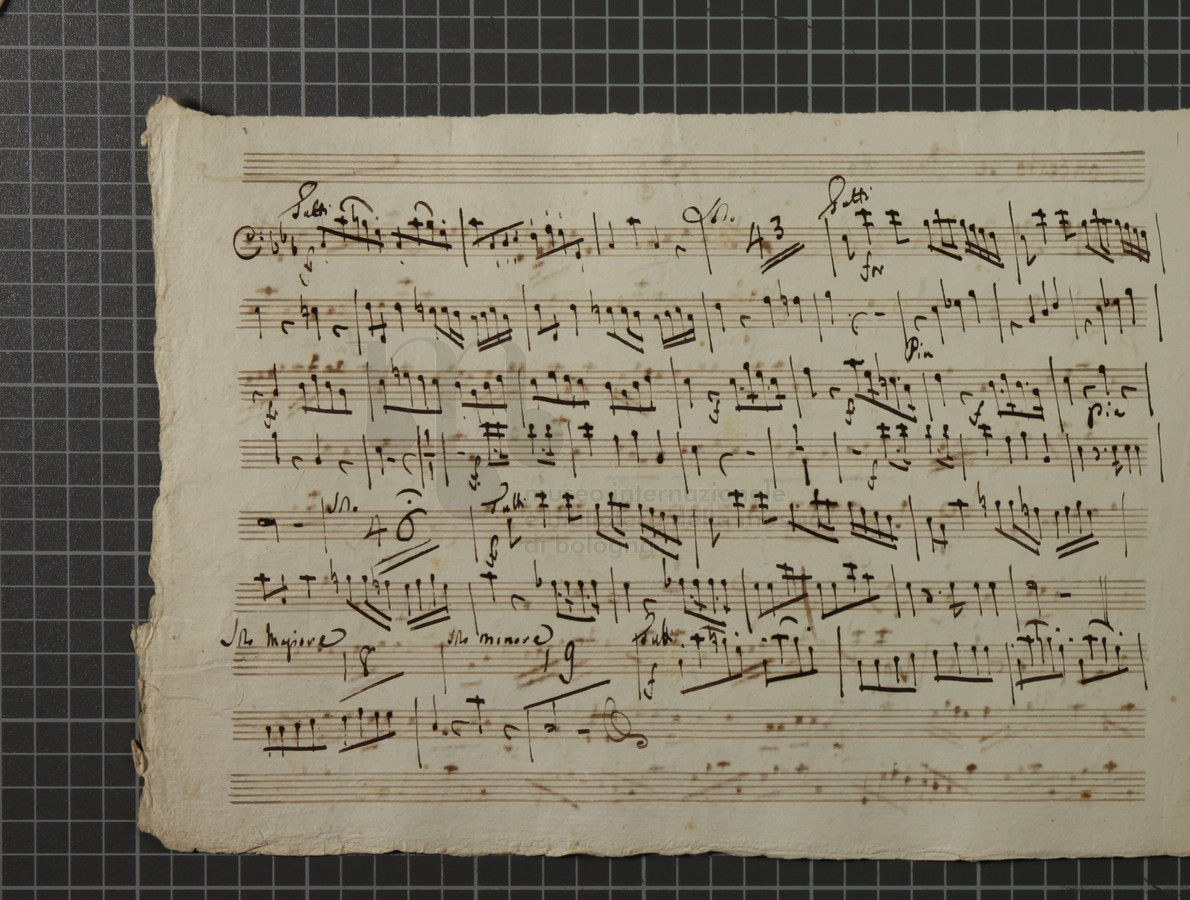 Tutti Solo 43 Tutti
fz
Pia
Pia
museo internazionale
Solo 46 Tutti
di bologna
Solo Majiore Solo minore Tutti
8 19
f